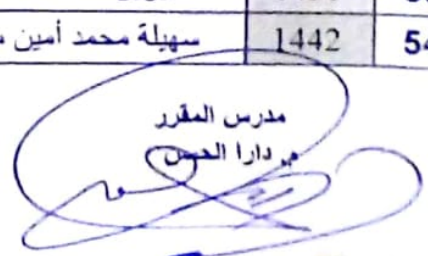 سهيلة محمد أمين 1442 54
مدرس المقرر
م. دارا الحسن